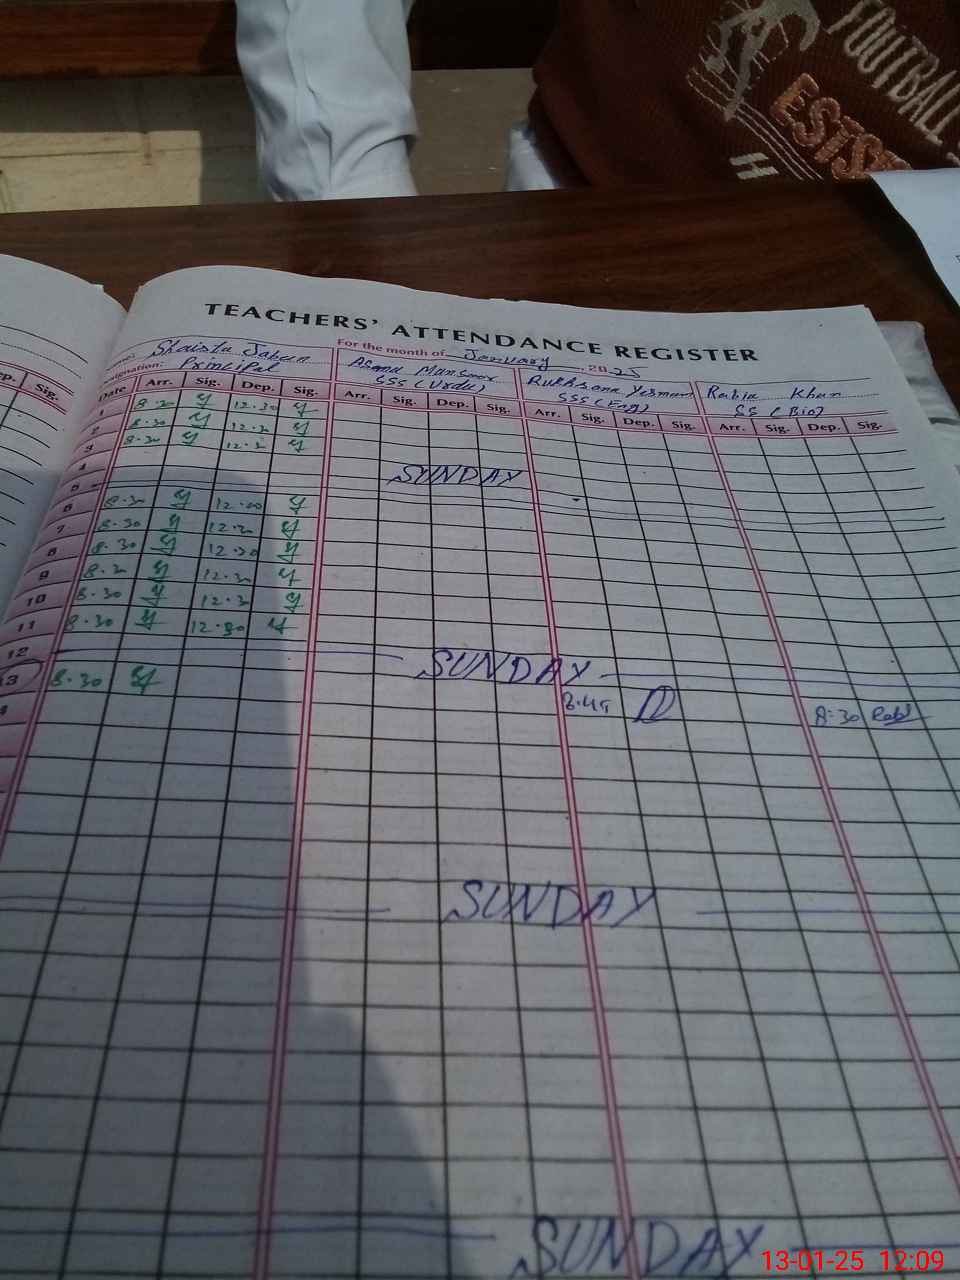 FOOTBALL
TEACHERS' ATTENDANCE REGISTER
For the month of January 2025
Shaista Principal
Designation:
Asma Mansoor SSS (Urdu)
Rukhsana Yasmin SSS (Eng)
Rabia Khan SS (Bio)
ep. Sig. Date Arr. Sig. Dep. Sig. Arr. Sig. Dep. Sig. Arr. Sig. Dep. Sig. Arr. Sig. Dep. Sig.
1 8.30 12.30
2 8.30 12.30
3 8.30 12.30
4
5 SUNDAY
6 8.30 12.00
7 8.30 12.30
8 8.30 12.30
9 8.30 12.30
10 8.30 12.30
11 8.30 12.30
12 SUNDAY
13 8.30 8.45 8.30
SUNDAY
SUNDAY
13-01-25 12:09